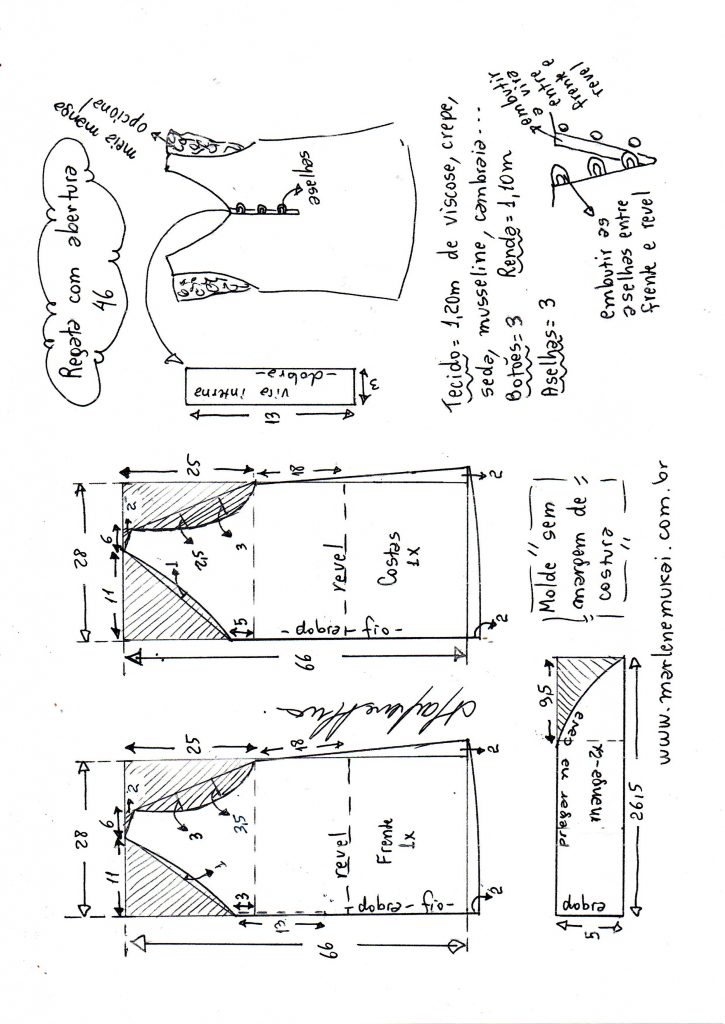 Regata com abertura
46
meia manga
opcional
aselhas
vira interna
-dobra-
13
3
Tecido= 1,20m de viscose, crepe,
seda, musseline, cambraia...
Botões= 3 Renda= 1,10m
Aselhas= 3
embutir
a vira
entre
frente e
revel
embutir as
aselhas entre
frente e revel
28
11
6
2
25
18
1
3
3,5
3
13
66
revel
Frente
1x
dobra - fio
2
2
28
11
6
2
25
18
1
2,5
3
5
66
revel
Costas
1x
dobra - fio
2
2
Molde sem
margem de
costura
9,5
pregar na cava
manga-2x
dobra
5
26,5
www.marlenemukai.com.br